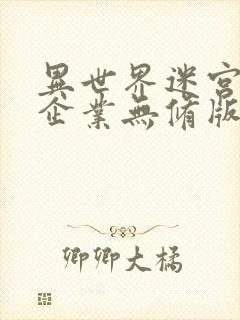 異世界迷宮
企業無脩版
卿卿大橘